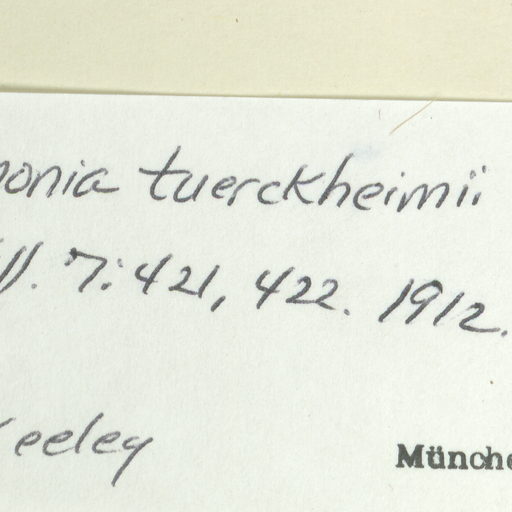 onia tuerckheimii
7:421, 422. 1912.
eeley
Münche